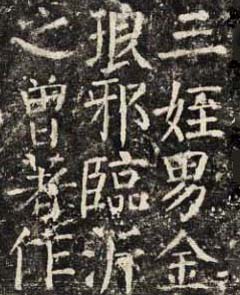 三姪男金
琅邪臨沂
之曾著作